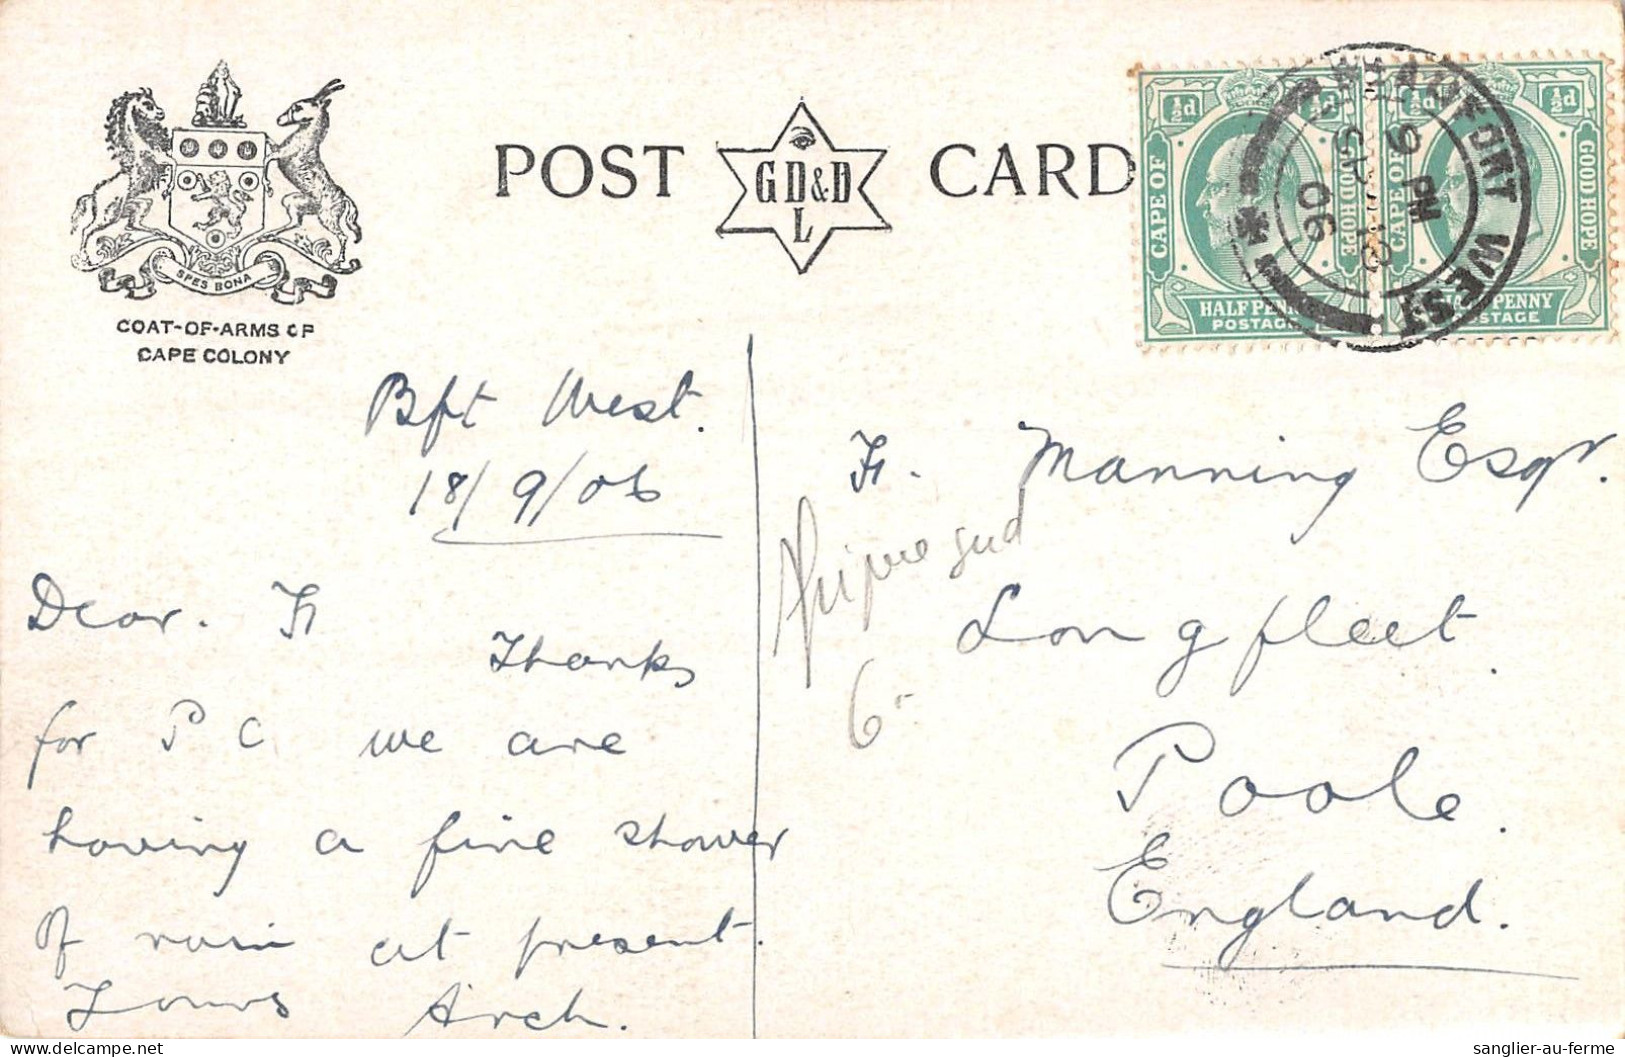 SPES BONA
COAT-OF-ARMS OF
CAPE COLONY
POST CARD
G D & D
L
½d ½d
CAPE OF GOOD HOPE
HALF PENNY
POSTAGE
½d
CAPE OF GOOD HOPE
PENNY
POSTAGE
BEAUFORT WEST
9 PM
SP 18
06
Bft West.
18/9/06
Dear. H
Thanks
for P C we are
having a fine shower
of rain at present.
Yours Arch.
H. Manning Esqr.
Longfleet.
Poole.
England.
6-
sanglier-au-ferme